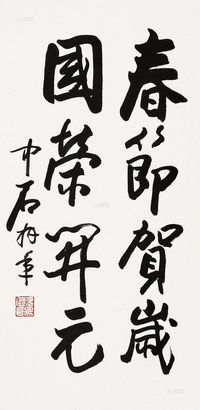 春節賀歲
國榮開元
中石拜年